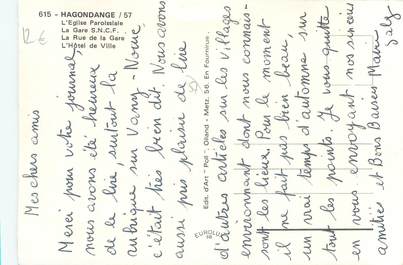 615 - HAGONDANGE / 57
L'Eglise Paroissiale
La Gare S.N.C.F.
La Rue de la Gare
L'Hôtel de Ville
12 €
Mes chers amis
Merci pour votre journal,
nous avons été heureux
de le lire surtout la
rubrique sur Vany - Nouic,
c'était très bien dit. Nous avons
aussi pris plaisir de lire
Edits. d'Art "Poli", Oland - Metz, 56, En Fournirue
EUROLUX
d'autres articles sur les villages
environnant dont nous connais-
sont les lieux. Pour le moment
il ne fait pas bien beau,
un vrai temps d'automne sur
tout les points. Je vous quitte
en vous envoyant nos sincères
amitiés et Bons Baisers